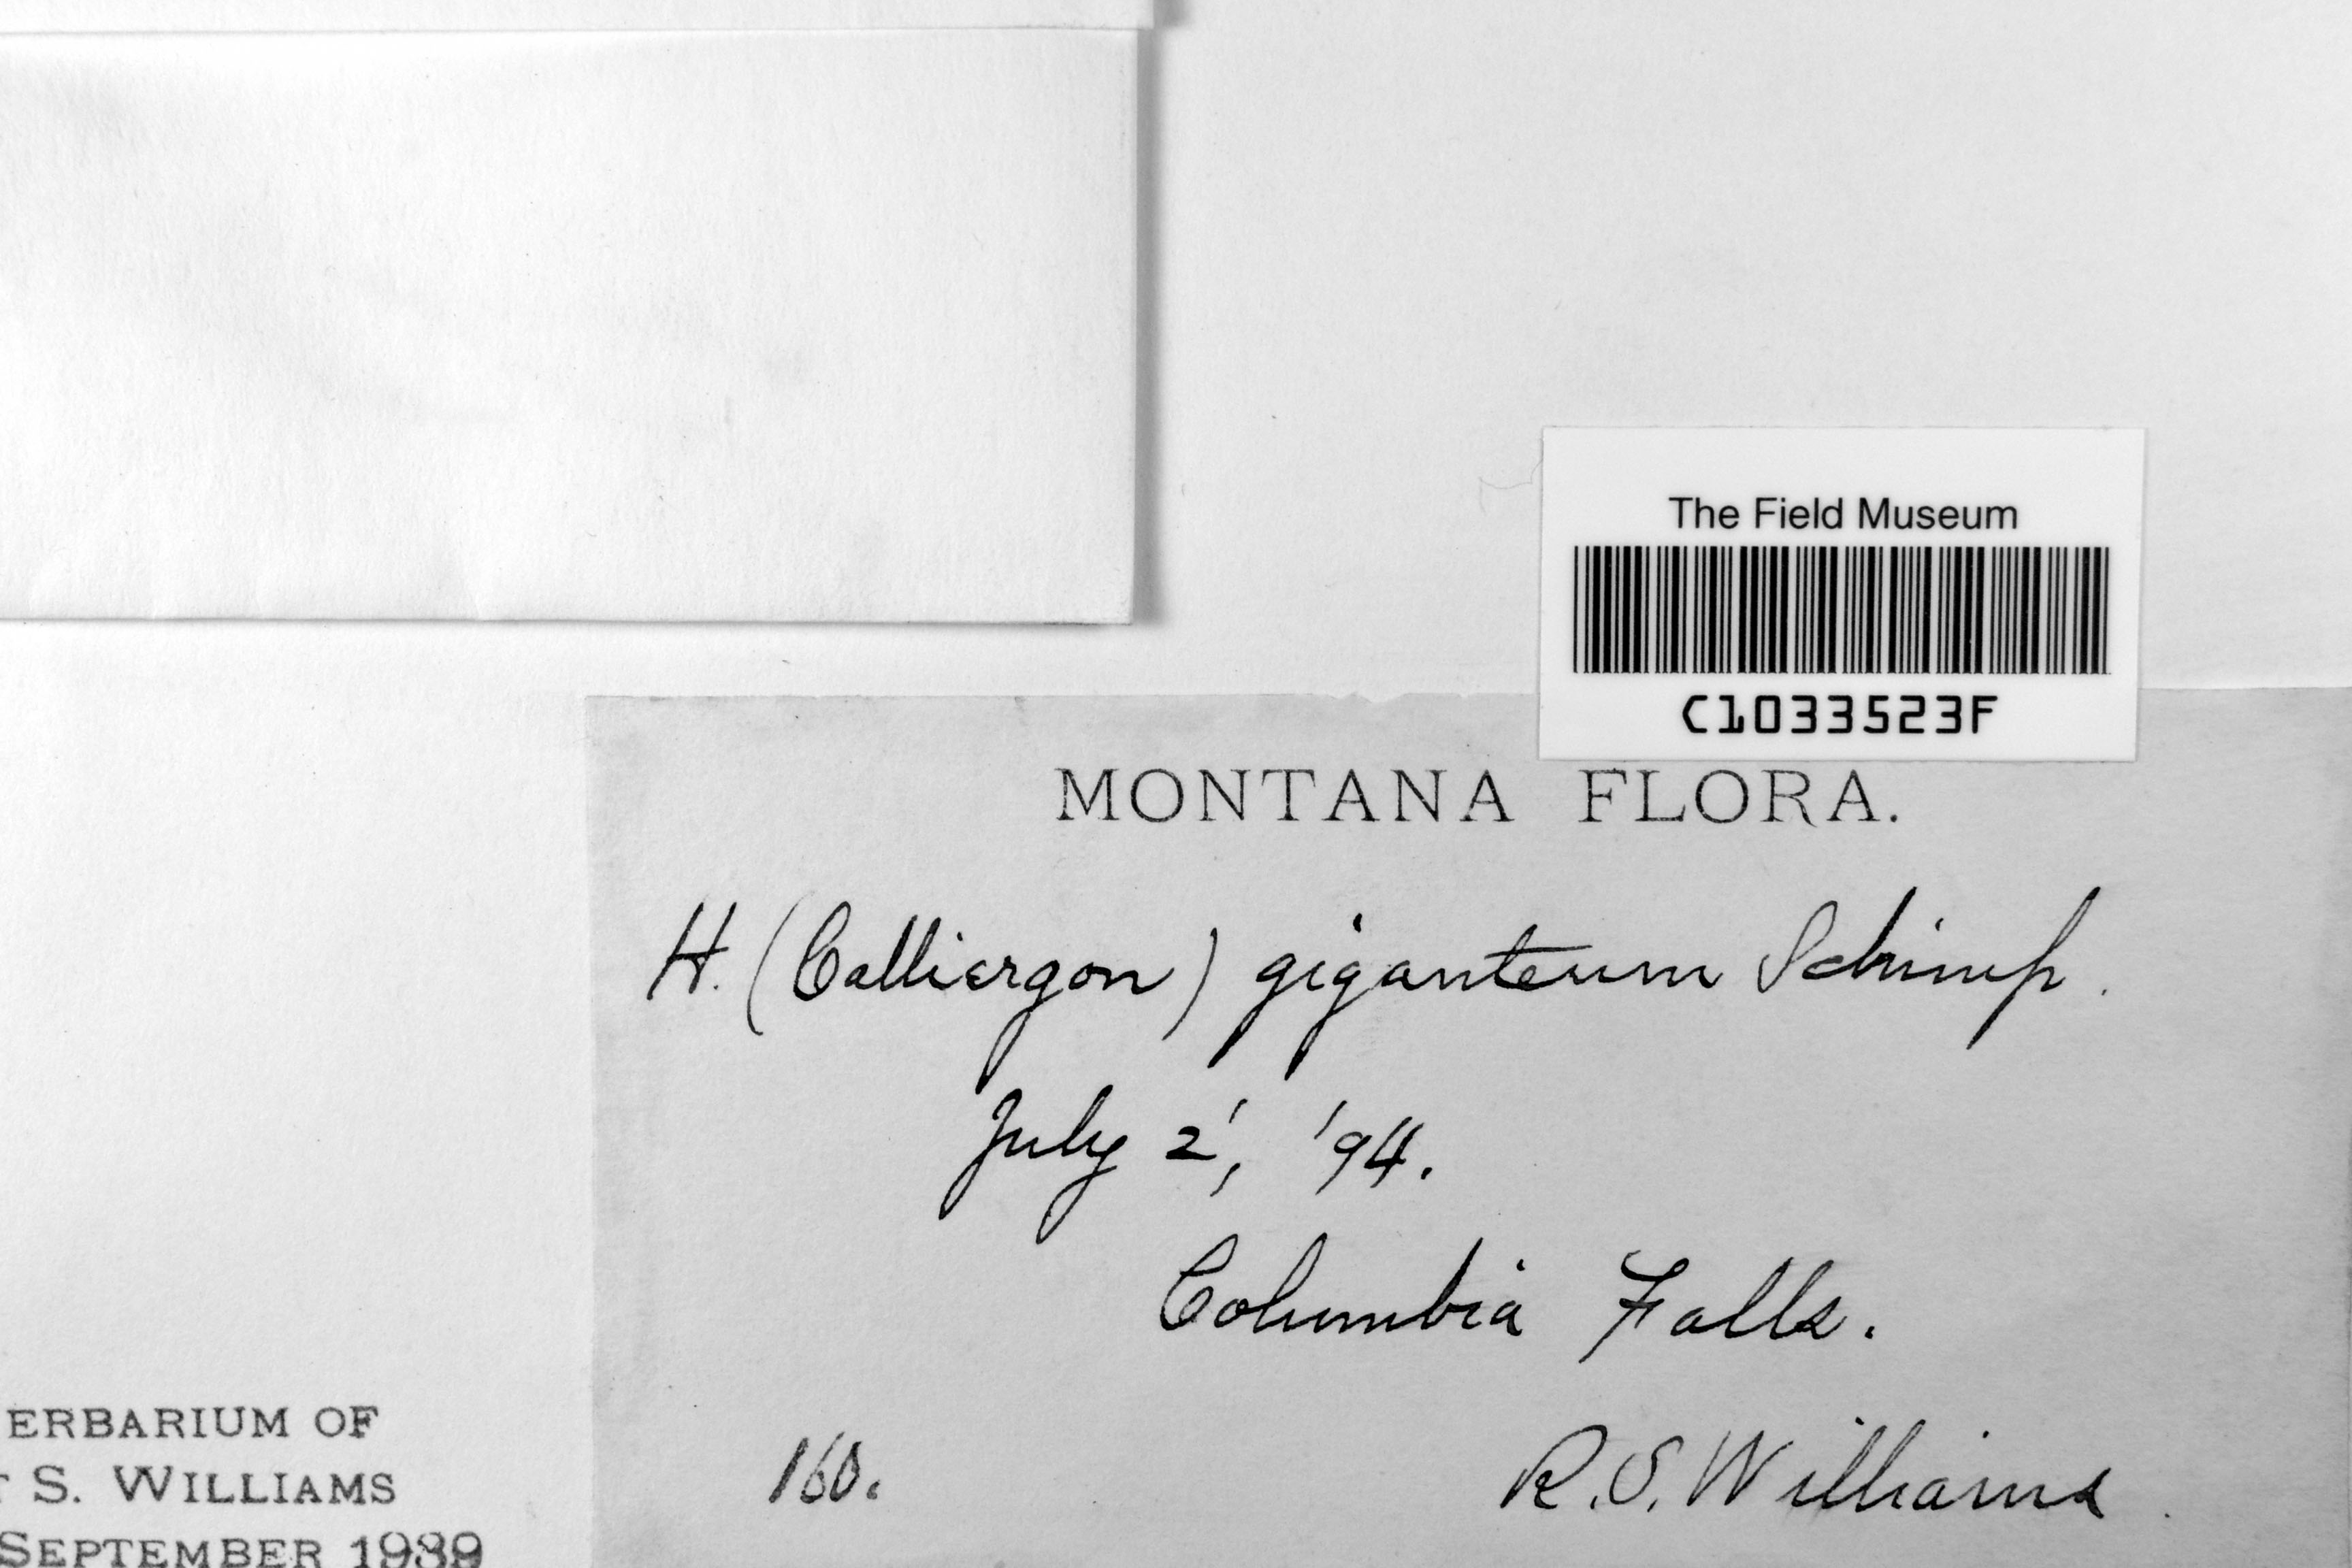 The Field Museum
C1033523F
MONTANA FLORA.
H. (Calliergon) giganteum Schimp.
July 2', '94.
Columbia Falls.
160.
R.S. Williams
ERBARIUM OF
T S. WILLIAMS
SEPTEMBER 1939